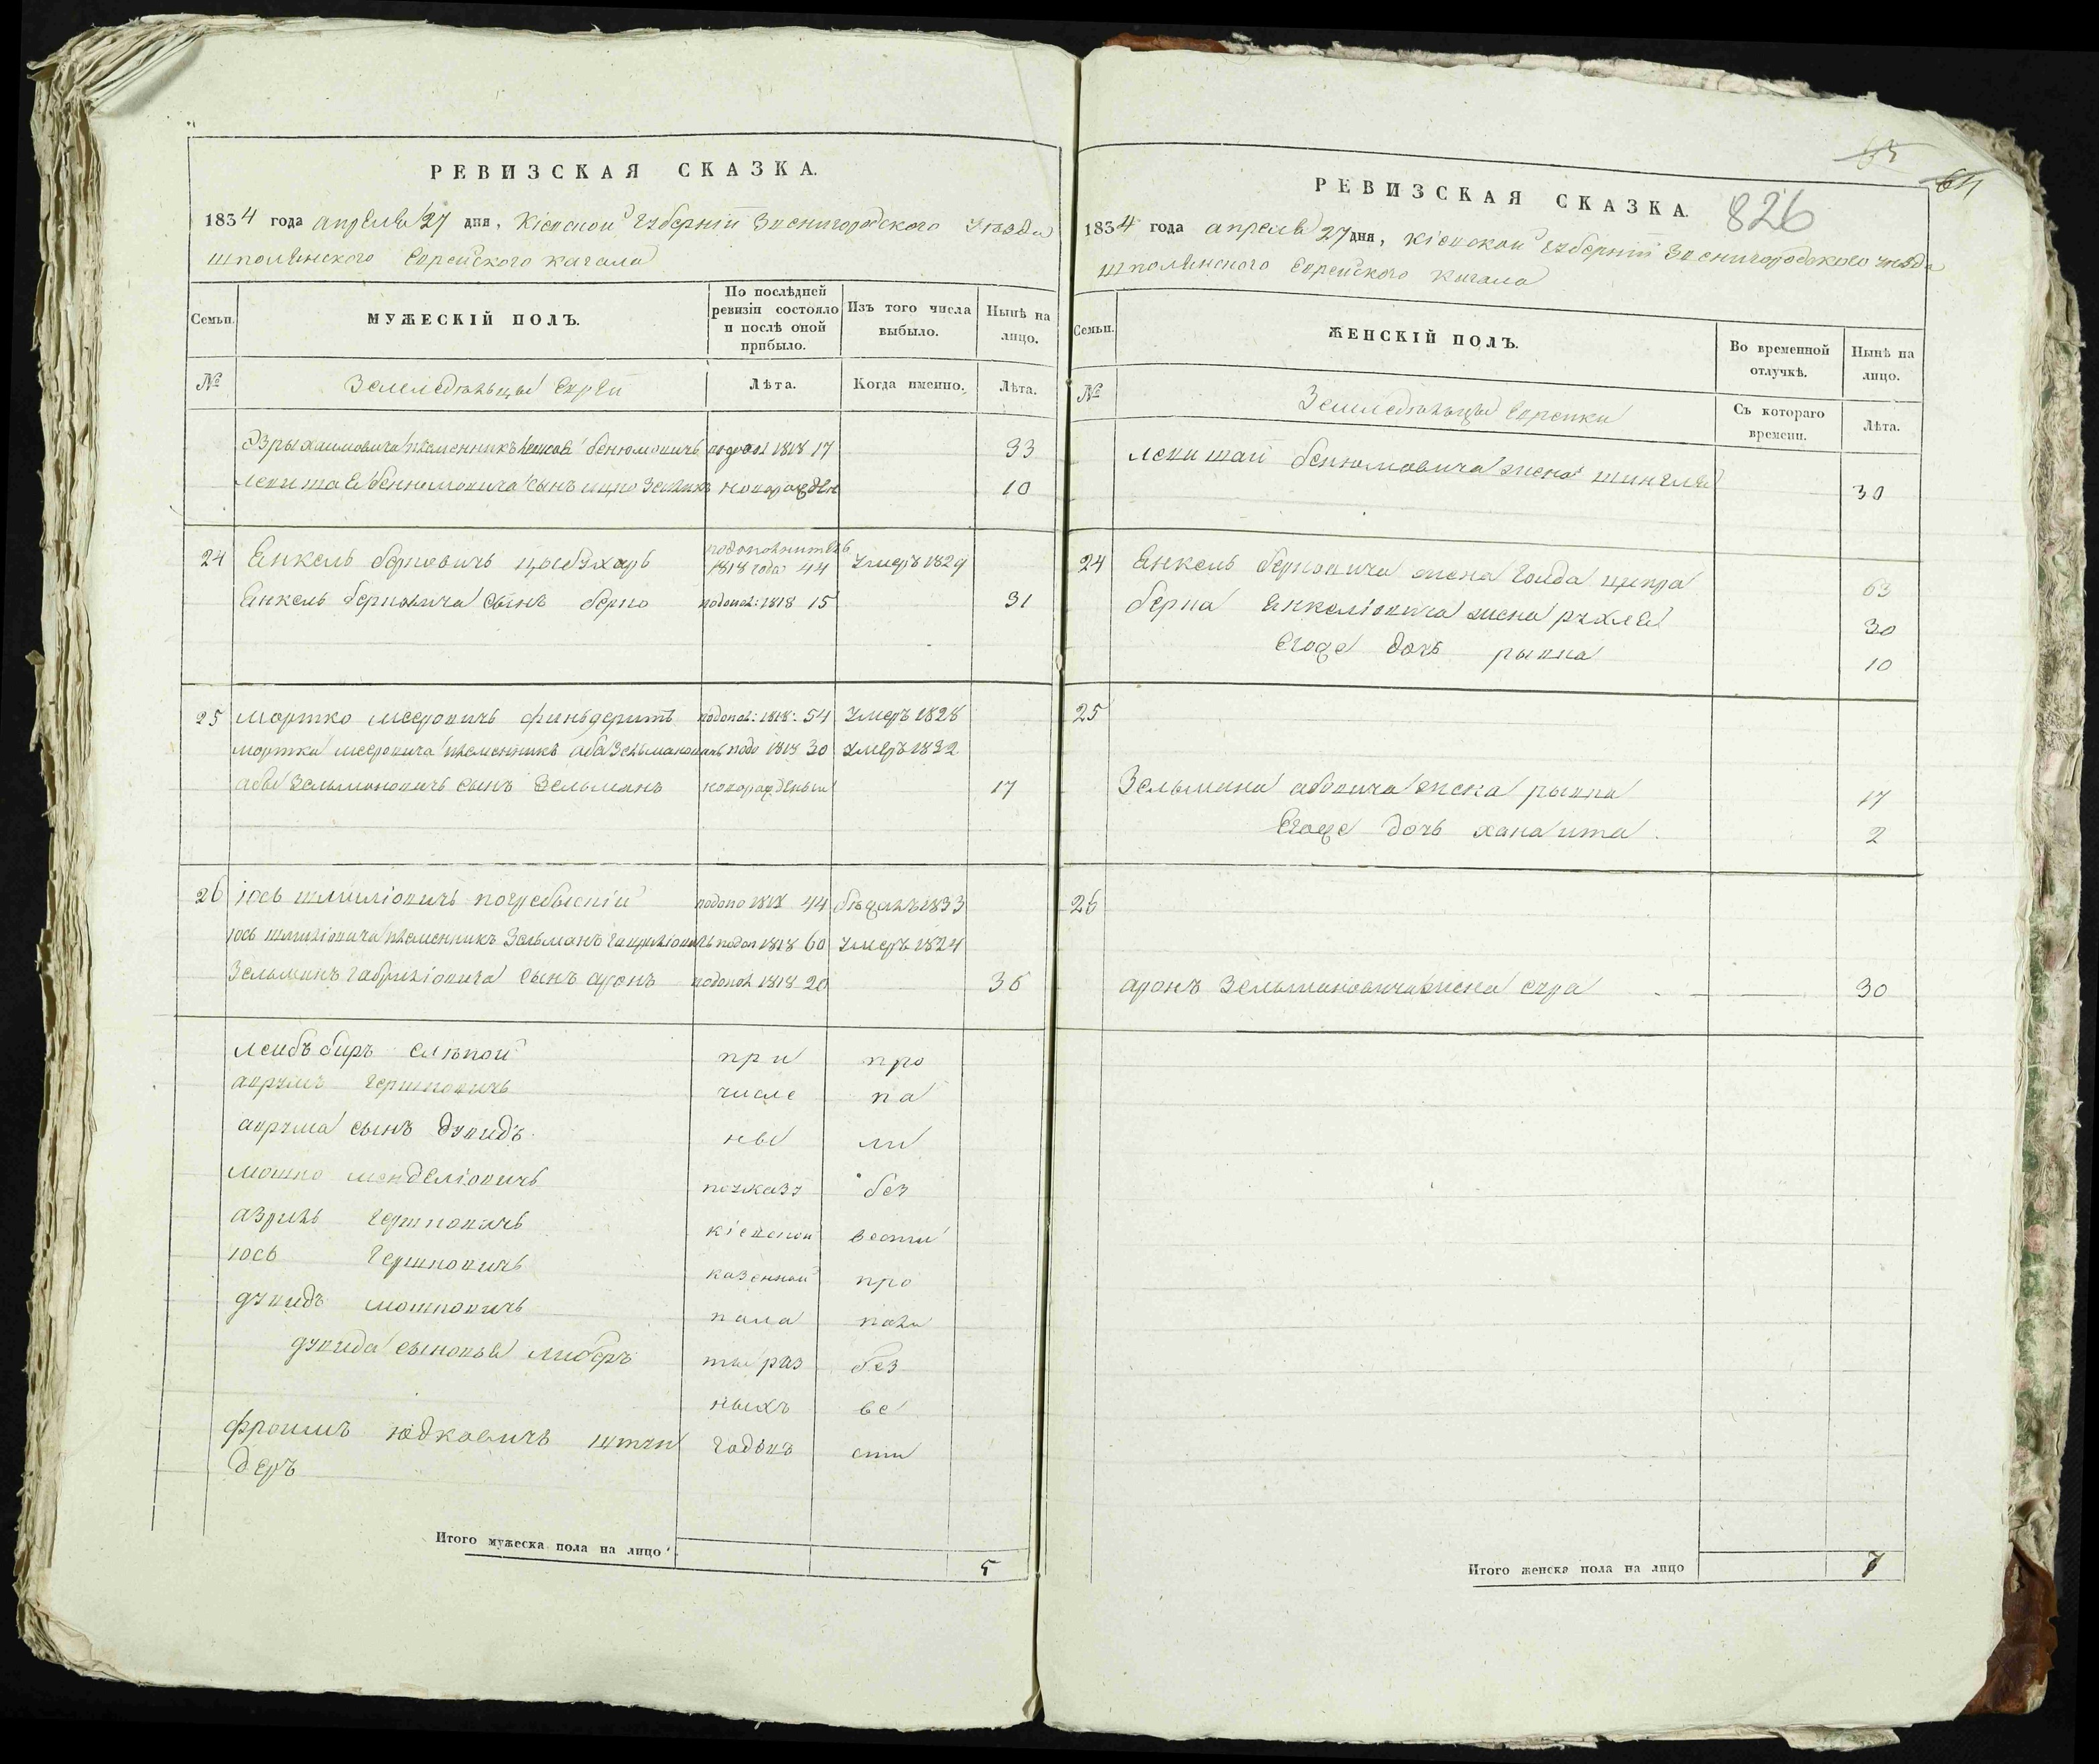 РЕВИЗСКАЯ СКАЗКА.
1834 года апреля 27 дня, Кіевской губерніи Звенигородского уезда
шполянского Еврейского кагала
Семьи.
МУЖЕСКІЙ ПОЛЪ.
По послѣдней ревизіи состояло и послѣ оной прибыло.
Изъ того числа выбыло.
Нынѣ на лицо.
№
Земледѣльцы Евреи
Лѣта.
Когда именно.
Лѣта.
племенникъ бенюмовичъ 1818 17 33
бенюмовича сынъ новорожден 10
24 Янкель берковичъ 1818 года 44 умеръ 1829
Янкель берковича сынъ берко подопол: 1818 15 31
25 мортко мееровичъ подопол: 1818: 54 умеръ 1828
мортки мееровича племенникъ аба Зельмановичъ подо 1818 30 умеръ 1832
абы Зельмановичъ сынъ Зельманъ новорожденый 17
26 Іось шмиліовичъ погребыскій подопо 1818 44 бѣжалъ 1833
Іось шмиліовича племенникъ Зельманъ гавриліовичъ подоп 1818 60 умеръ 1824
Зельманъ гавриліовича сынъ аронъ подопол 1818 20 36
лейбъ биръ слѣпой при про
аврумъ гершковичъ числе па
аврума сынъ дувидъ ны ли
мошко менделіовичъ поуказу без
азриль гершковичъ кіевской вести
Іось гершковичъ казенной про
дувидъ мошковичъ пала пали
дувида сыновья либеръ ты раз без
ныхъ ве
фроимъ юдковичъ годовъ сти
деръ
Итого мужеска пола на лицо 5
65
64
826
РЕВИЗСКАЯ СКАЗКА.
1834 года апреля 27 дня, Кіевской губерніи Звенигородского уезда
шполянского Еврейского кагала
Семьи.
ЖЕНСКІЙ ПОЛЪ.
Во временной отлучкѣ.
Нынѣ на лицо.
№
Земледѣльцы Еврейки
Съ котораго времени.
Лѣта.
бенюмовича жена 30
24 Янкель берковича жена голда ципра 63
берка Янкеліовича жена рухля 30
Егоже дочь рывка 10
25
Зельмана абовича жена рывка 17
Егоже дочь хана ита 2
26
аронъ Зельмановича жена сура 30
Итого женска пола на лицо 7